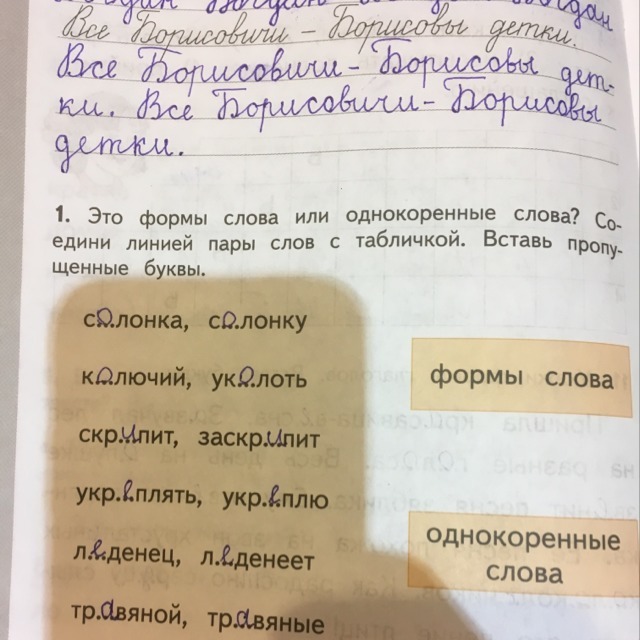 Все Борисовичи – Борисовы детки.
Все Борисовичи – Борисовы дет-
ки. Все Борисовичи – Борисовы
детки.
1. Это формы слова или однокоренные слова? Со-
едини линией пары слов с табличкой. Вставь пропу-
щенные буквы.
солонка, солонку
колючий, уколоть
скрипит, заскрипит
укреплять, укреплю
леденец, леденеет
травяной, травяные
формы слова
однокоренные
слова